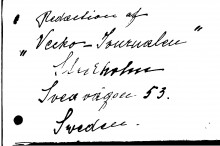 Redaction of
"Vecko-Journalen"
Stockholm
Sveavägen 53.
Sweden.